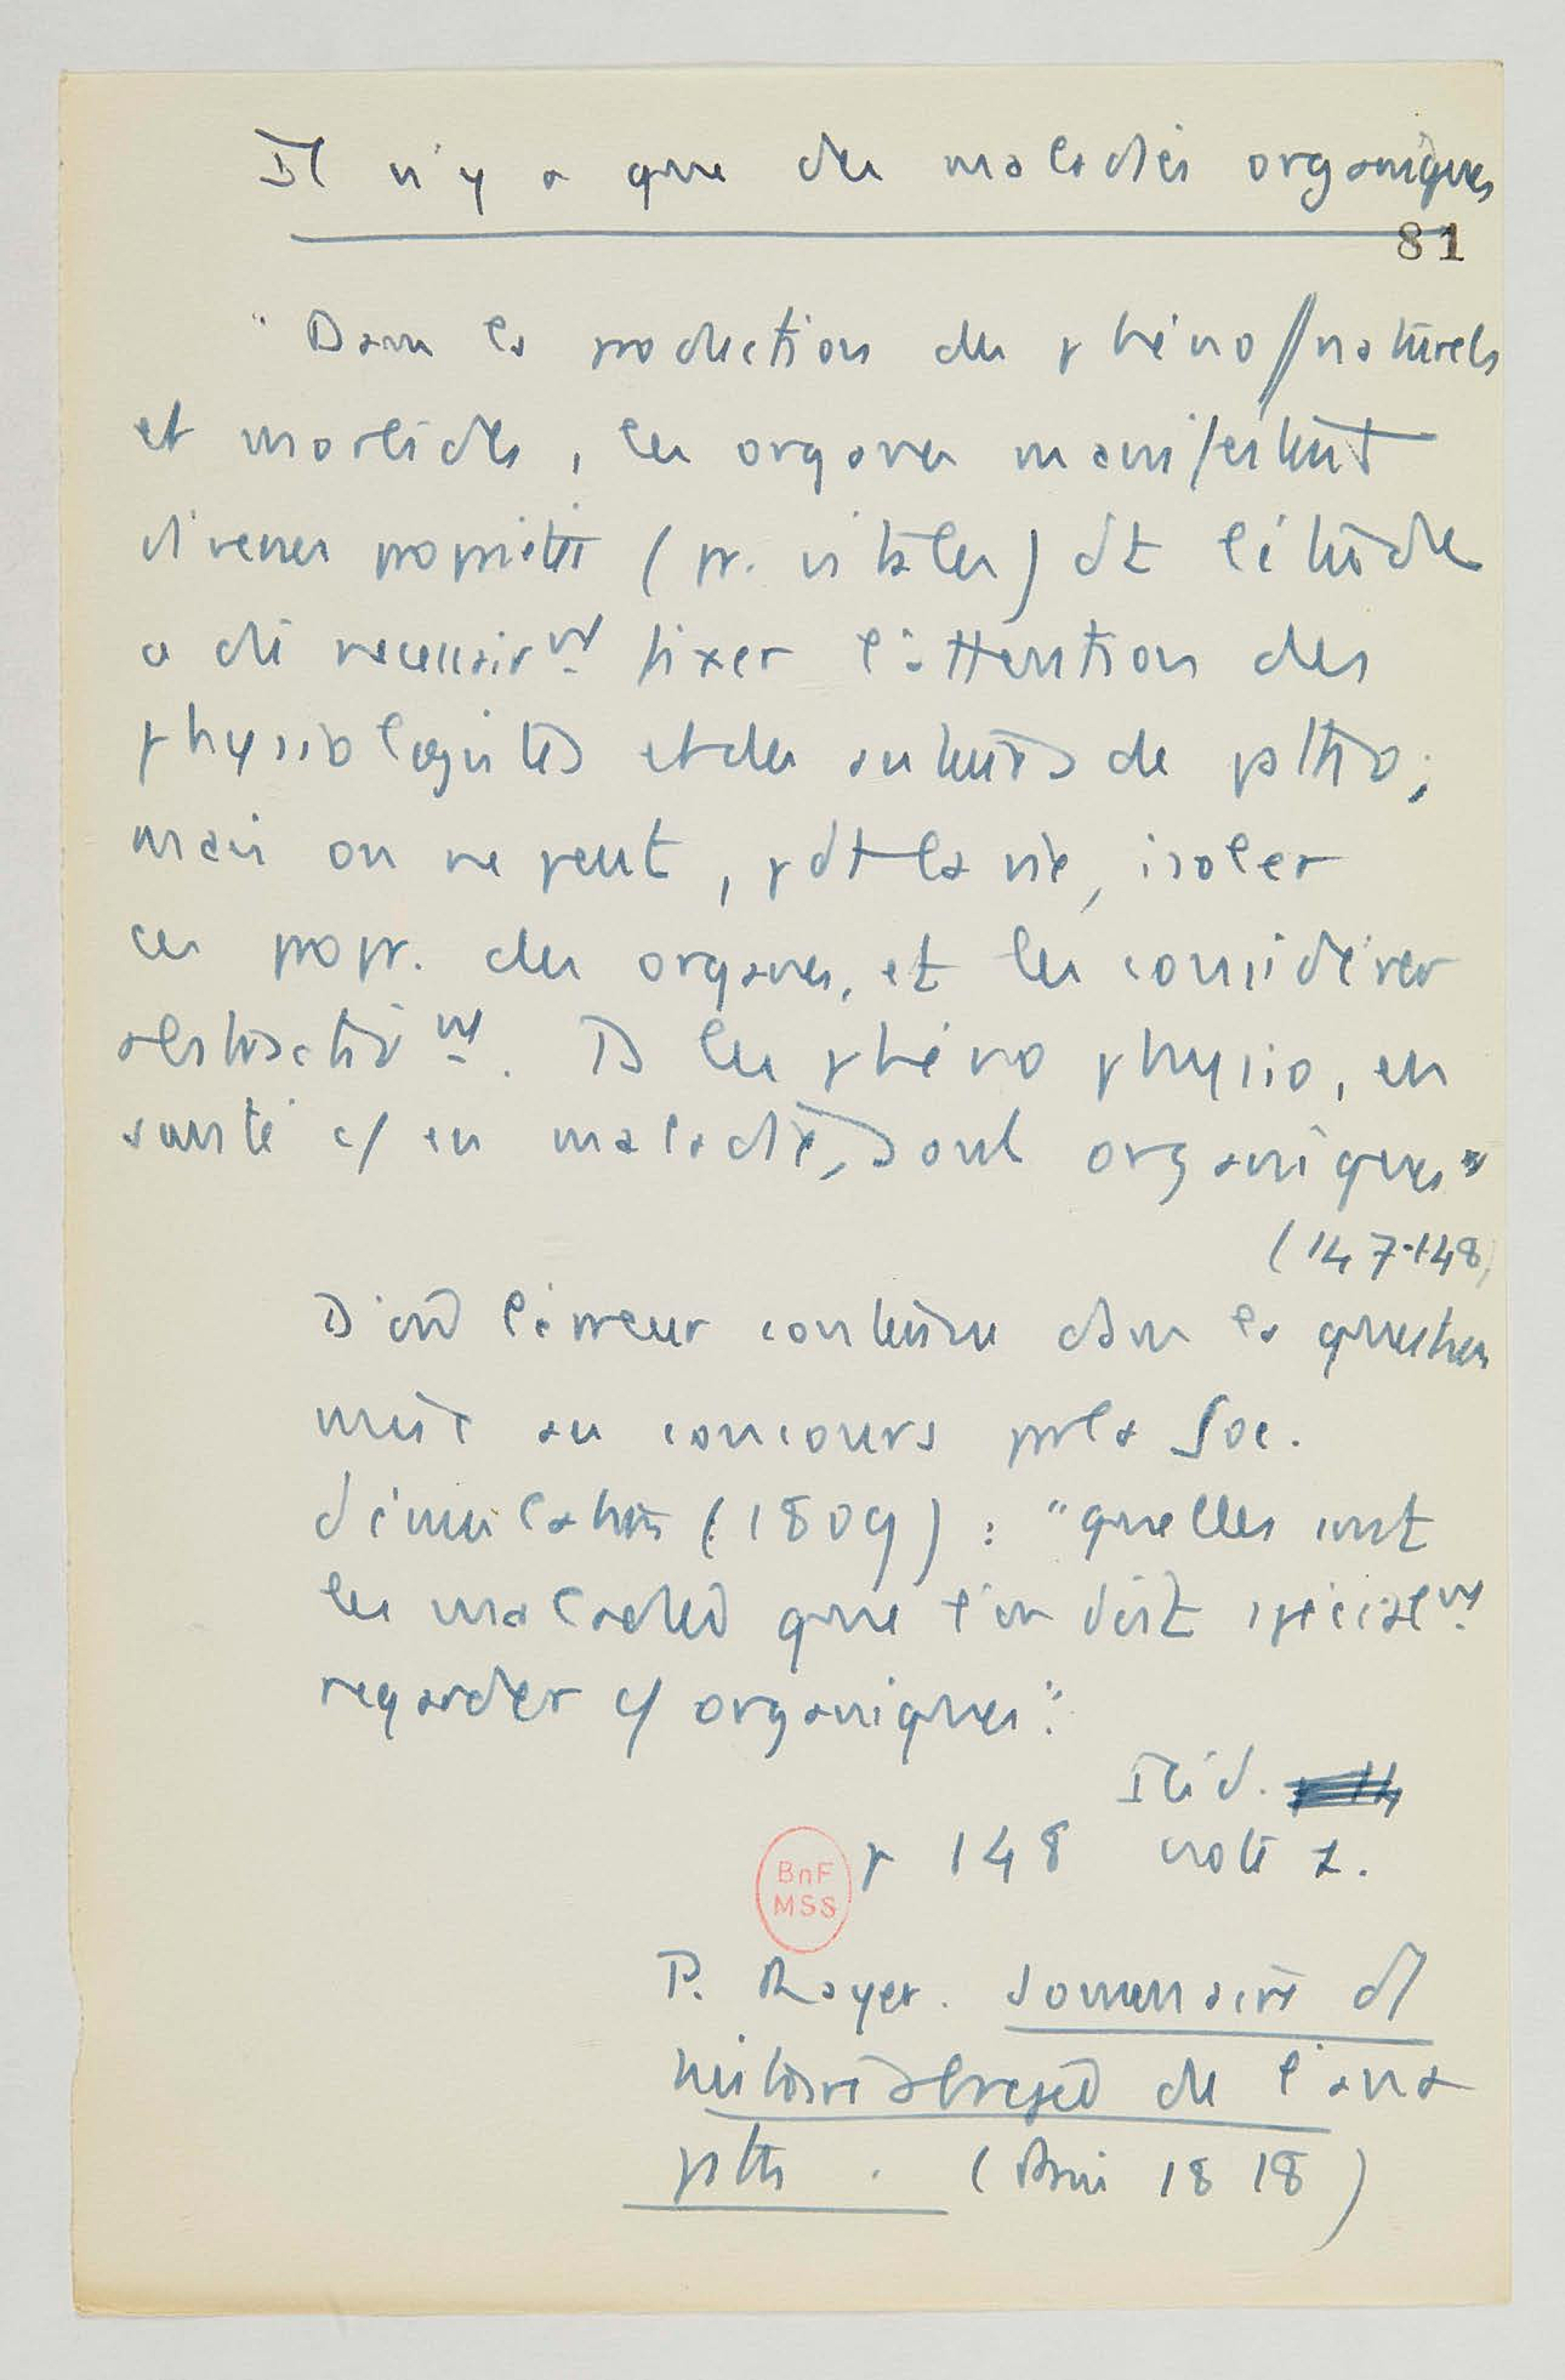 Il n'y a que des maladies organiques
81
"Dans la production des phéno // naturels
et morbides, les organes manifestent
diverses propriétés (pr. vitales) dt l'étude
a dû nécessairmt fixer l'attention des
physiologistes et des auteurs de patho ;
mais on ne peut, pdt la vie, isoler
ces propr. des organes, et les considérer
abstractivmt. Ts les phéno physio, en
santé c/ en maladie, sont organiques"
(147-148)
D'où l'erreur contenue dans la question
mise au concours par la Soc.
d'émulation (1809) : "quelles sont
les maladies que l'on doit spécialmt
regarder c/ organiques".
Ibid.
p 148 note 2.
BnF
MSS
P. Rayer. Sommaire d/
histoire abrégée de l'ana
patho . (Paris 1818)